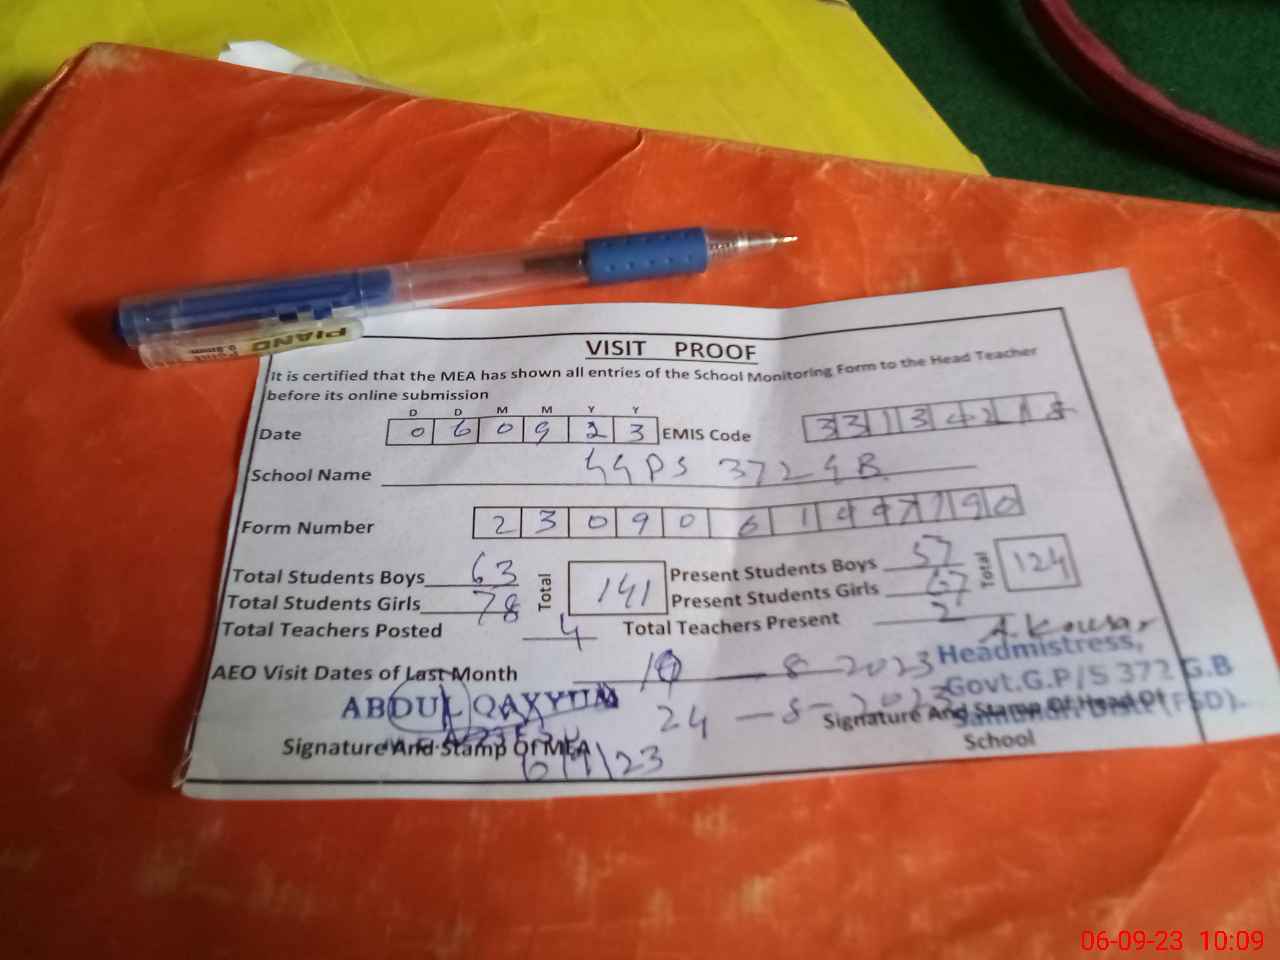 PIANO
VISIT PROOF
It is certified that the MEA has shown all entries of the School Monitoring Form to the Head Teacher
before its online submission
D D M M Y Y
Date 0 6 0 9 2 3 EMIS Code 3 3 1 3 4 2 1
School Name GGPS 372 GB
Form Number 2 3 0 9 0 6 1 4 4 7 7 9 0
Total Students Boys 63 Total 141 Present Students Boys 57 Total 124
Total Students Girls 78 Present Students Girls 67
Total Teachers Posted 4 Total Teachers Present 2
A. Kousar
AEO Visit Dates of Last Month 8 - 2023 Headmistress,
Govt.G.P/S 372 G.B
ABDUL QAYYUM 24 - 8 - 2023 (FSD).
Signature And Stamp Of MEA Signature And Stamp Of Head Of
School
6/9/23
06-09-23 10:09